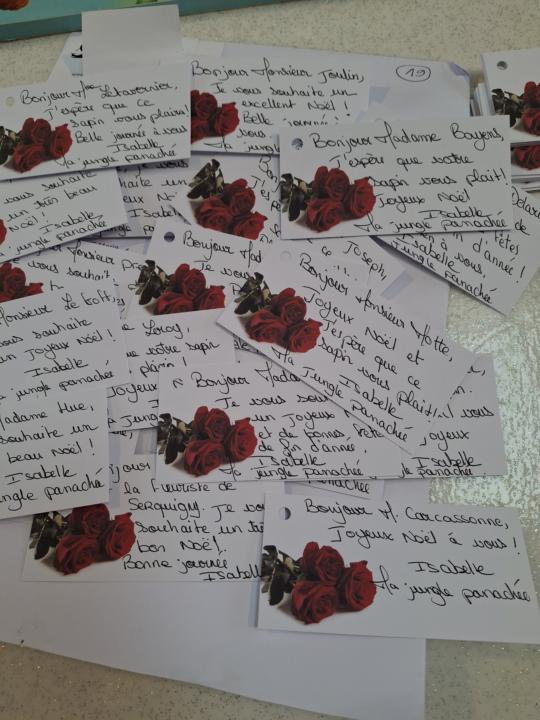 Bonjour Mme Letavernier,
J'espère que ce
sapin vous plaira!
Belle journée à vous
Isabelle
La jungle panachée
Bonjour Monsieur Joulin,
Je vous souhaite un
excellent Noël!
Belle journée à
vous
19
Bonjour Madame Bayens,
J'espère que votre
sapin vous plait!
Joyeux Noël
Isabelle
La jungle panachée
vous souhaite
un très beau
Noël!
Isabelle
jungle panachée
souhaite un
Isabel
Joseph,
fête,
d'année!
à vous,
Isabelle
Jungle panachée
Bonjour Mad
Je vous
Bonjour Monsieur Motte,
Joyeux Noël et
J'espère que ce
sapin vous plait!
Isabelle
La Jungle Panachée
vous souhaite
un Joyeux Noël!
Isabelle
La jungle panachée
Leroy,
votre sapin
Joyeux
Jung
Bonjour Mada
Je vous sou
un Joyeux
et de bonnes fête
de fin d'année!
Isabelle
La jungle panachée
vous
Joyeux
Isabelle
jungle panachée
Madame Hue,
souhaite un
beau Noël!
Isabelle
jungle panachée
la fleuriste de
Serquigny. Je vo
souhaite un trè
bon Noël.
Bonne journée
Isabelle
Bonjour M. Carcassonne,
Joyeux Noël à vous!
Isabelle
La jungle panachée